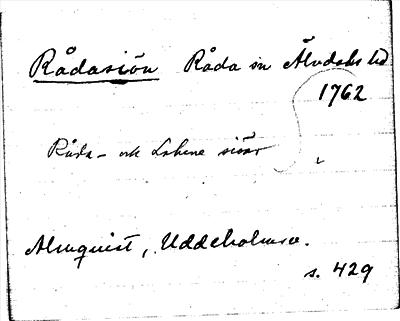 Rådasiön Råda sn Älvdals hd
1762
Råda- och Lakene siöar
Almquist, Uddeholmsv.
s. 429